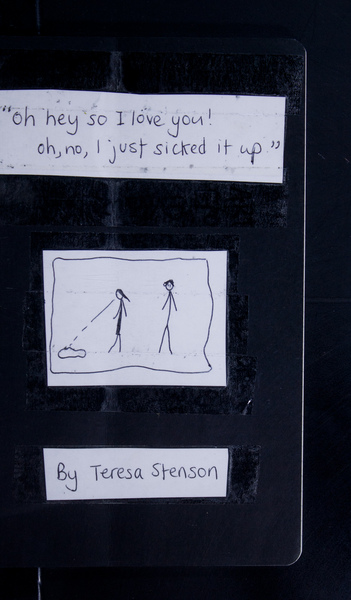 "Oh hey so I love you!
oh, no, I just sicked it up."
By Teresa Stenson